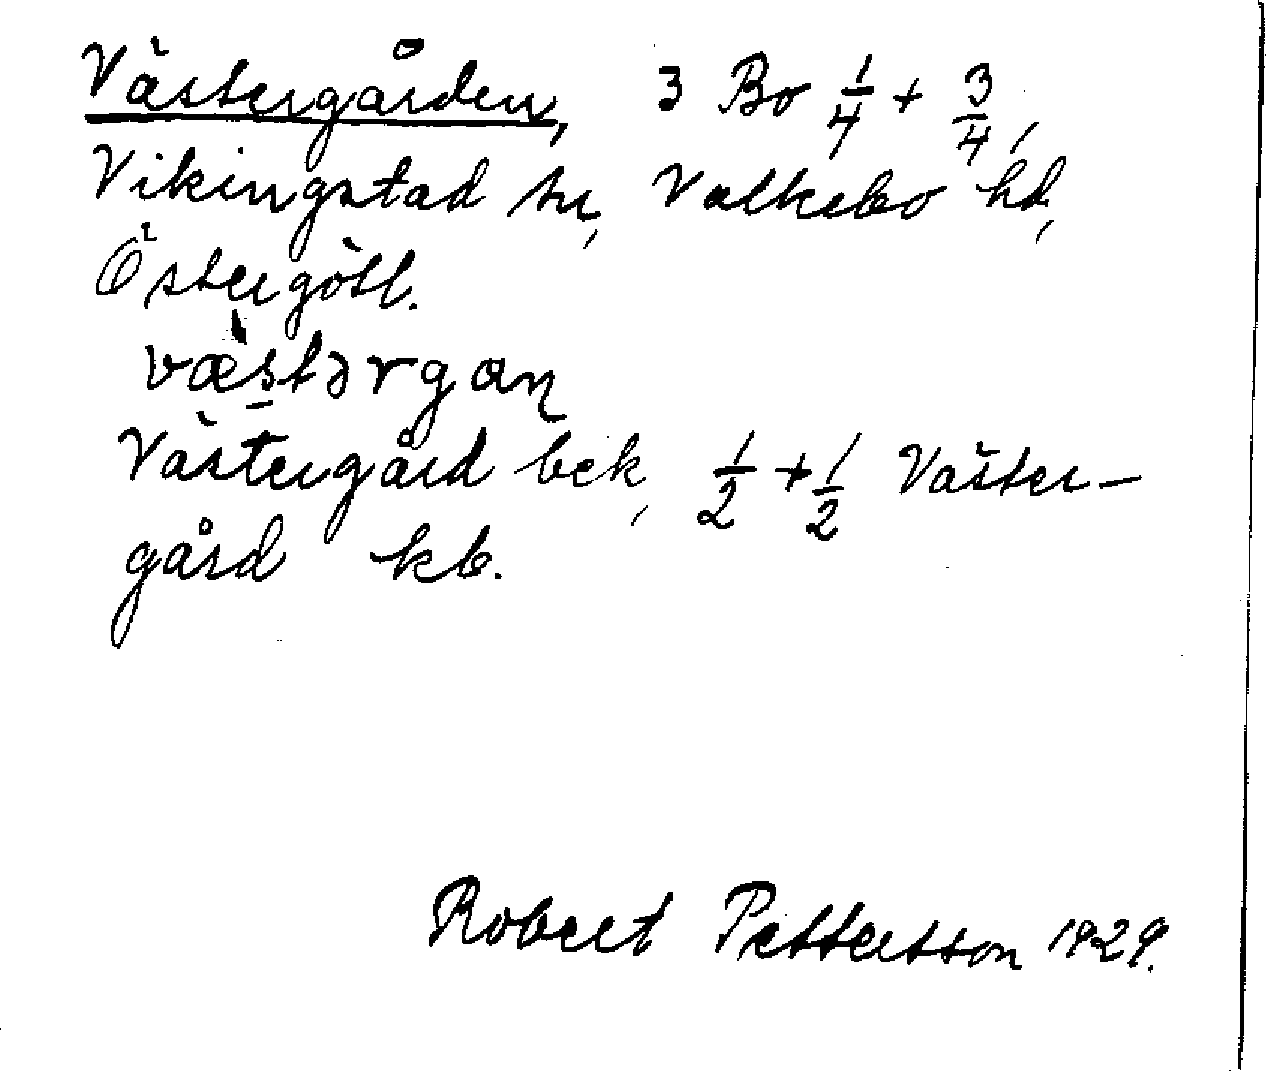 Västergården, 3 Bo 1/4 + 3/4,
Vikingstad sn, Valkebo hd,
Östergötl.
væ̀stərgɑɳ
Västergård bek, 1/2 + 1/2 Väster-
gård kb.
Robert Pettersson 1929.